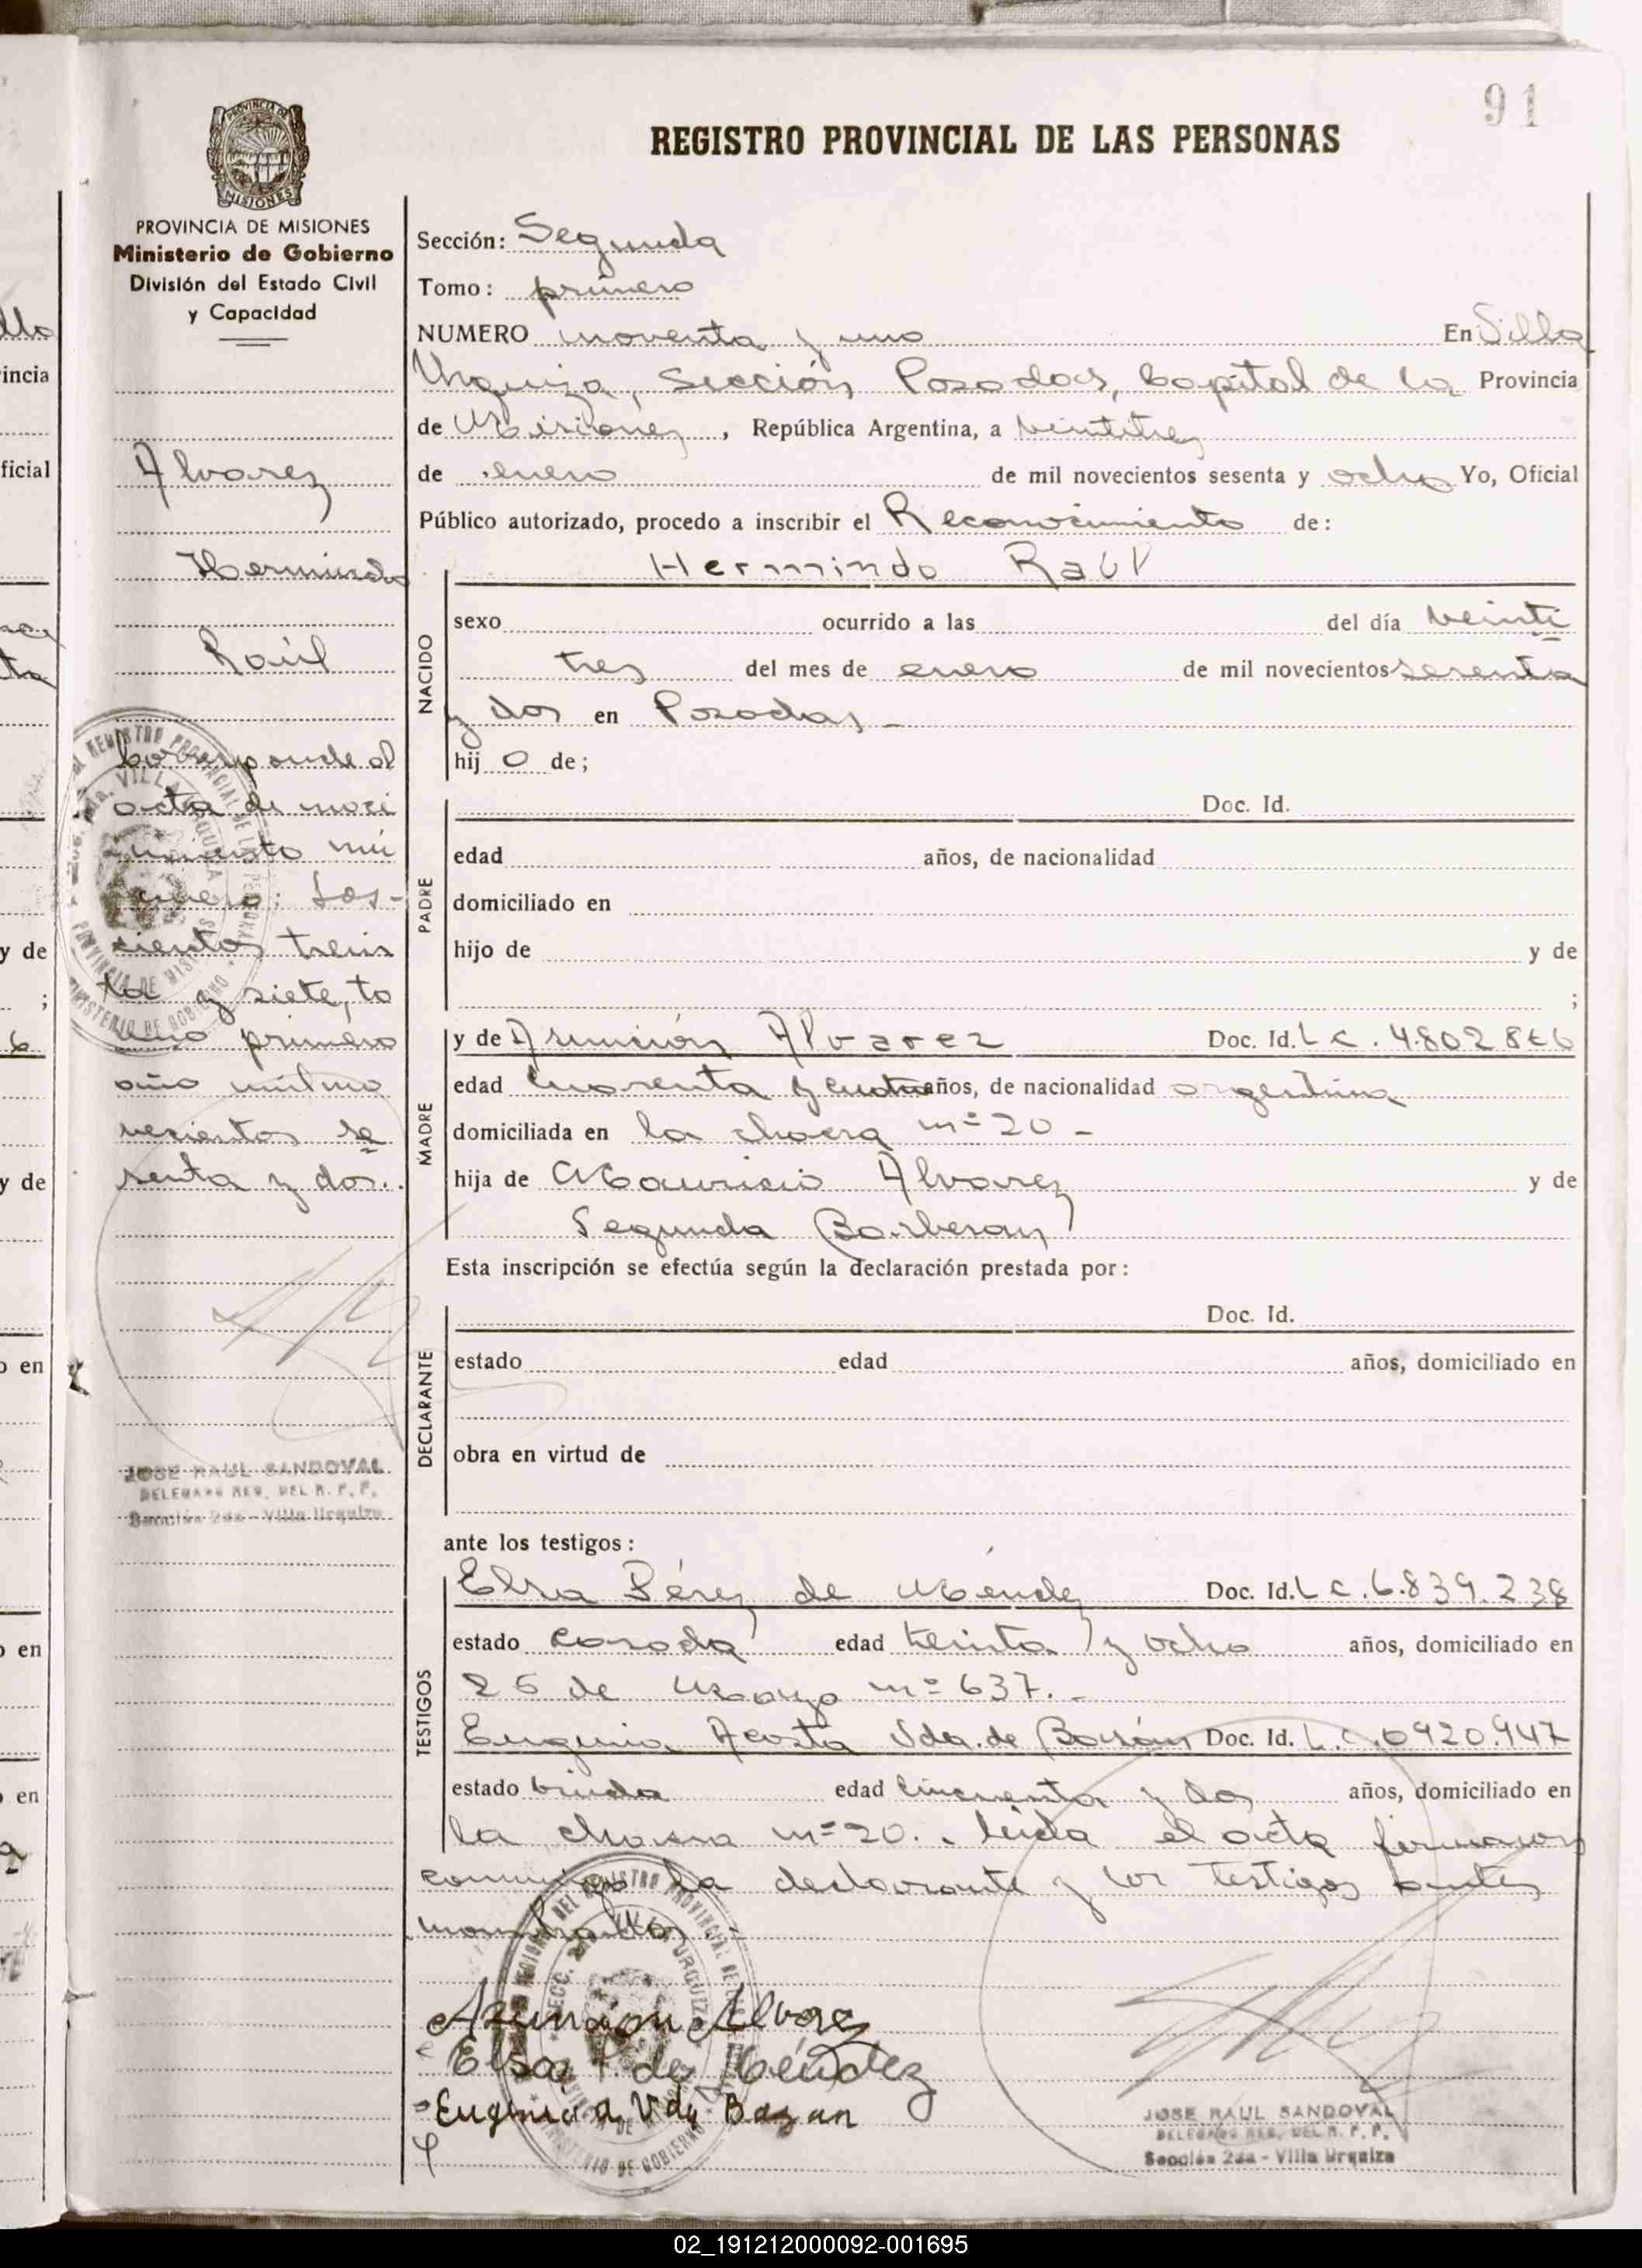 91
REGISTRO PROVINCIAL DE LAS PERSONAS
PROVINCIA DE MISIONES
Ministerio de Gobierno
División del Estado Civil
y Capacidad
Alvarez
Hermindo
Raúl
Corresponde al
acta de naci
miento nú
mero: Dos-
cientos trein
ta y siete, to
mo primero
año mil no
vecientos se
senta y dos..
JOSE RAUL SANDOVAL
DELEGADO REG. DEL R. P. P.
Sección 2da - Villa Urquiza
Sección: Segunda
Tomo: primero
NUMERO noventa y uno En Villa
Urquiza, Sección Posadas, Capital de la Provincia
de Misiones, República Argentina, a veintitres
de enero de mil novecientos sesenta y ocho Yo, Oficial
Público autorizado, procedo a inscribir el Reconocimiento de:
Hermindo Raúl
NACIDO
sexo ocurrido a las del día veinti
tres del mes de enero de mil novecientos sesenta
y dos en Posadas -
hijo de;
PADRE
Doc. Id.
edad años, de nacionalidad
domiciliado en
hijo de y de
;
MADRE
y de Asunción Alvarez Doc. Id. L C. 4.802.866
edad cuarenta y cuatro años, de nacionalidad argentina
domiciliada en la chacra nº 20 -
hija de Mauricio Alvarez y de
Segunda Barberan
Esta inscripción se efectúa según la declaración prestada por:
DECLARANTE
Doc. Id.
estado edad años, domiciliado en
obra en virtud de
ante los testigos:
TESTIGOS
Elsa Pérez de Méndez Doc. Id. L C. 6.839.238
estado casada edad treinta y ocho años, domiciliado en
25 de Mayo nº 637. -
Eugenia Acosta Vda. de Bazán Doc. Id. L. C. 0920.947
estado viuda edad cincuenta y dos años, domiciliado en
la chacra nº 20. - leida el acta firmaron
conmigo la declarante y los testigos antes
nombrados -
Asunción Alvarez
Elsa P. de Méndez
Eugenia a, Vda Bazan
JOSE RAUL SANDOVAL
DELEGADO REG. DEL R. P. P.
Sección 2da - Villa Urquiza
02_191212000092-001695